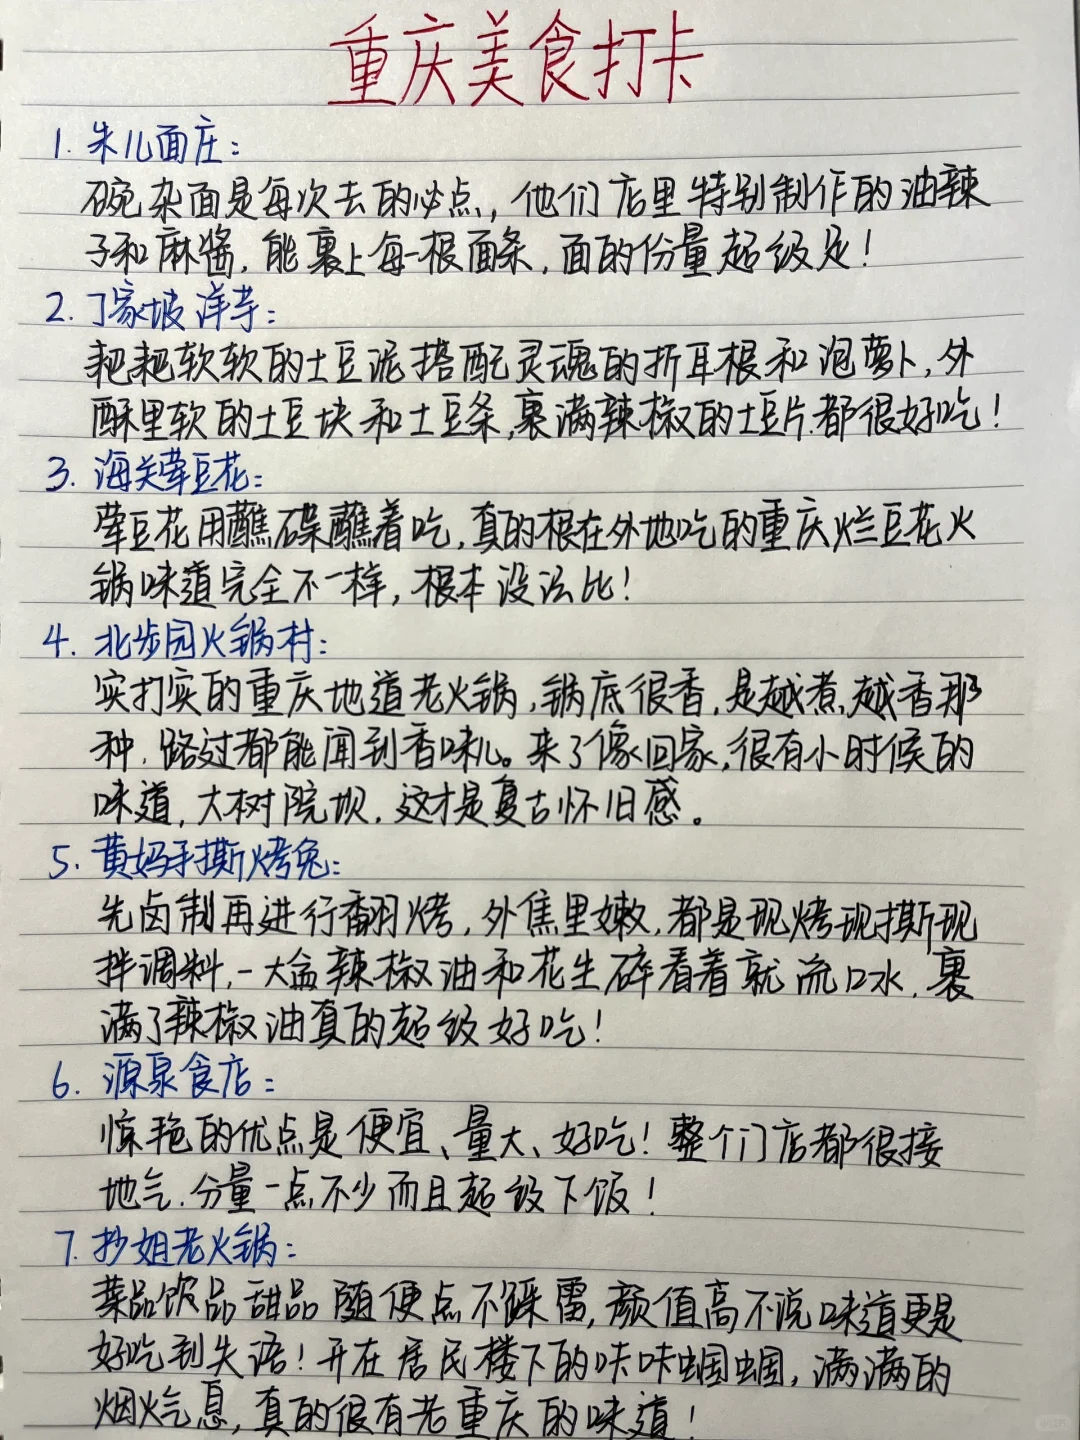 重庆美食打卡
1. 朱儿面庄:
碗杂面是每次去的必点，他们店里特别制作的油辣
子和麻酱，能裹上每一根面条，面的份量超级足！
2. 丁家坡洋芋:
耙耙软软的土豆泥搭配灵魂的折耳根和泡萝卜，外
酥里软的土豆块和土豆条，裹满辣椒的土豆片.都很好吃！
3. 海关荤豆花:
荤豆花用蘸碟蘸着吃，真的根在外地吃的重庆烂豆花火
锅味道完全不一样，根本没法比！
4. 北步园火锅村:
实打实的重庆地道老火锅，锅底很香，是越煮越香那
种.路过都能闻到香味儿。来了像回家，很有小时候的
味道，大树院坝.这才是复古怀旧感。
5. 黄妈手撕烤兔:
先卤制再进行翻烤，外焦里嫩，都是现烤现撕现
拌调料，一大盆辣椒油和花生碎看着就流口水，裹
满了辣椒油真的超级好吃！
6. 源泉食店:
惊艳的优点是便宜、量大、好吃！整个门店都很接
地气.分量一点不少而且超级下饭！
7. 抄姐老火锅:
菜品饮品甜品随便点不踩雷，颜值高不说味道更是
好吃到失语！开在居民楼下的咔咔蝈蝈，满满的
烟火气息，真的很有老重庆的味道！